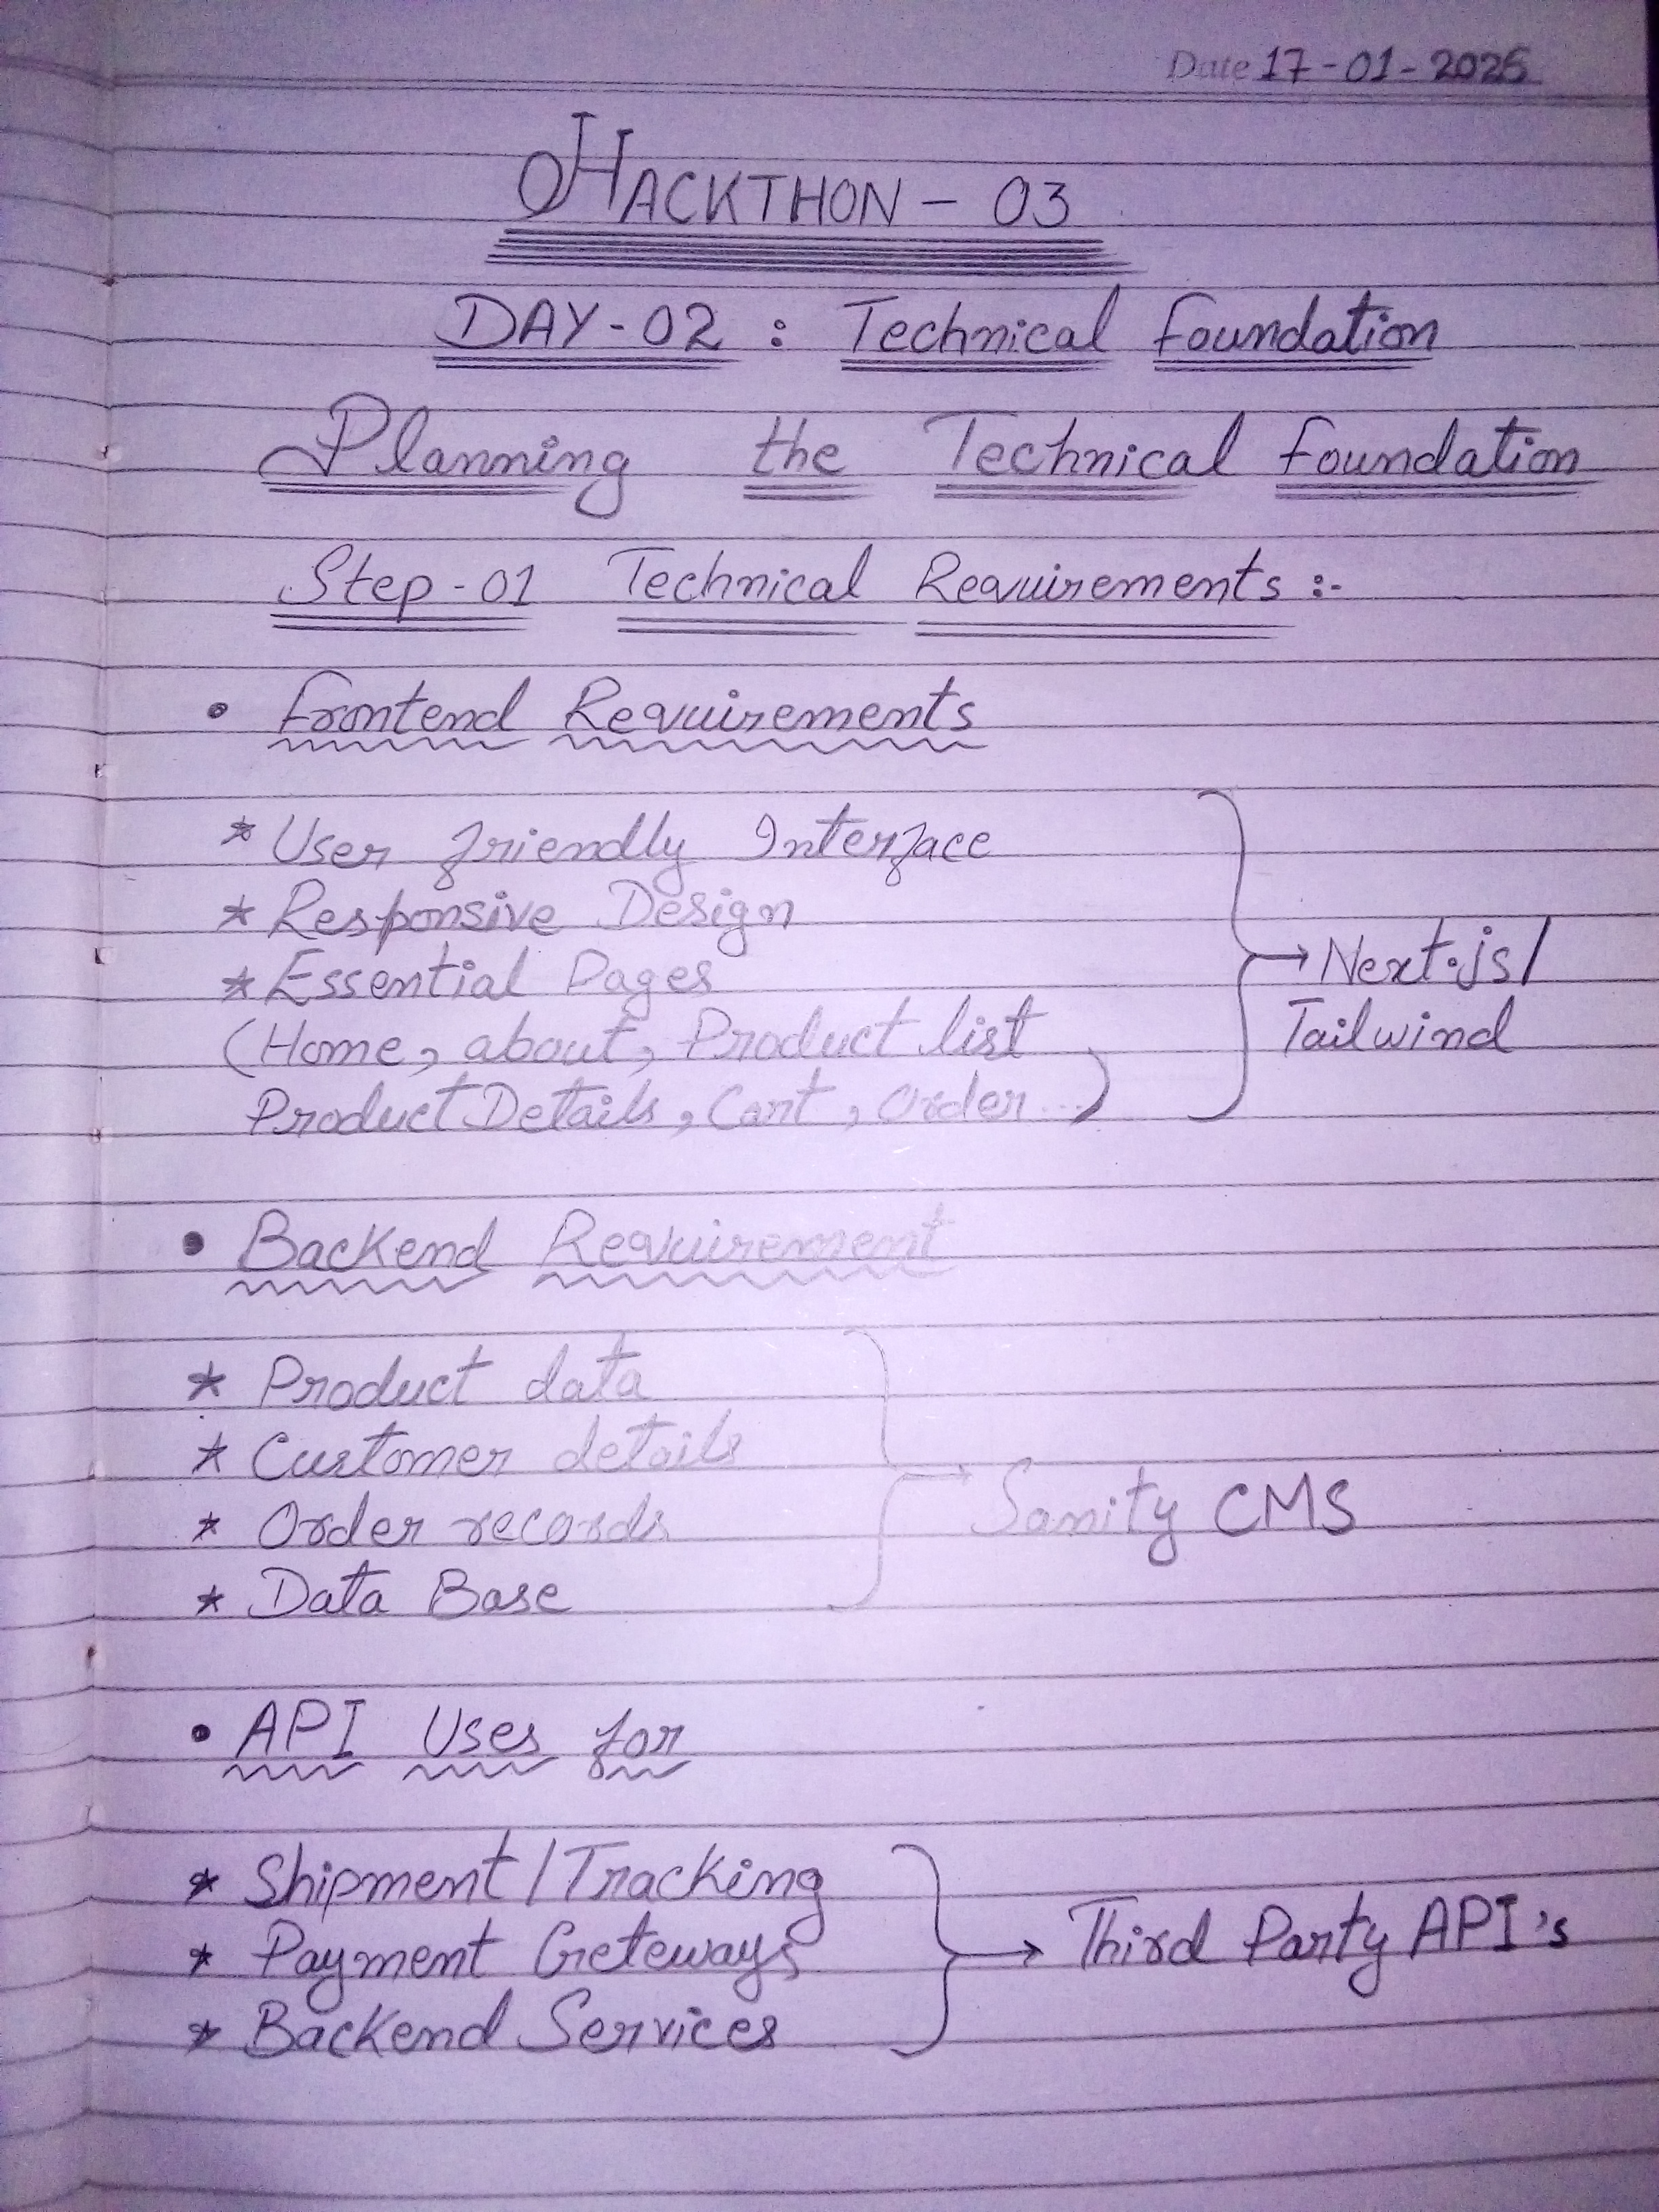 Date 17-01-2025
HACKTHON - 03
DAY-02 : Technical Foundation
Planning the Technical Foundation
Step-01 Technical Requirements :-
• Frontend Requirements
* User friendly Interface
* Responsive Design
* Essential Pages
(Home, about, Product list
Product Details, Cart, Order...)
→ Next.js/
Tailwind
• Backend Requirement
* Product data
* Customer details
* Order records
* Data Base
→ Sanity CMS
• API Uses for
* Shipment/Tracking
* Payment Geteways
* Backend Services
→ Third Party API's